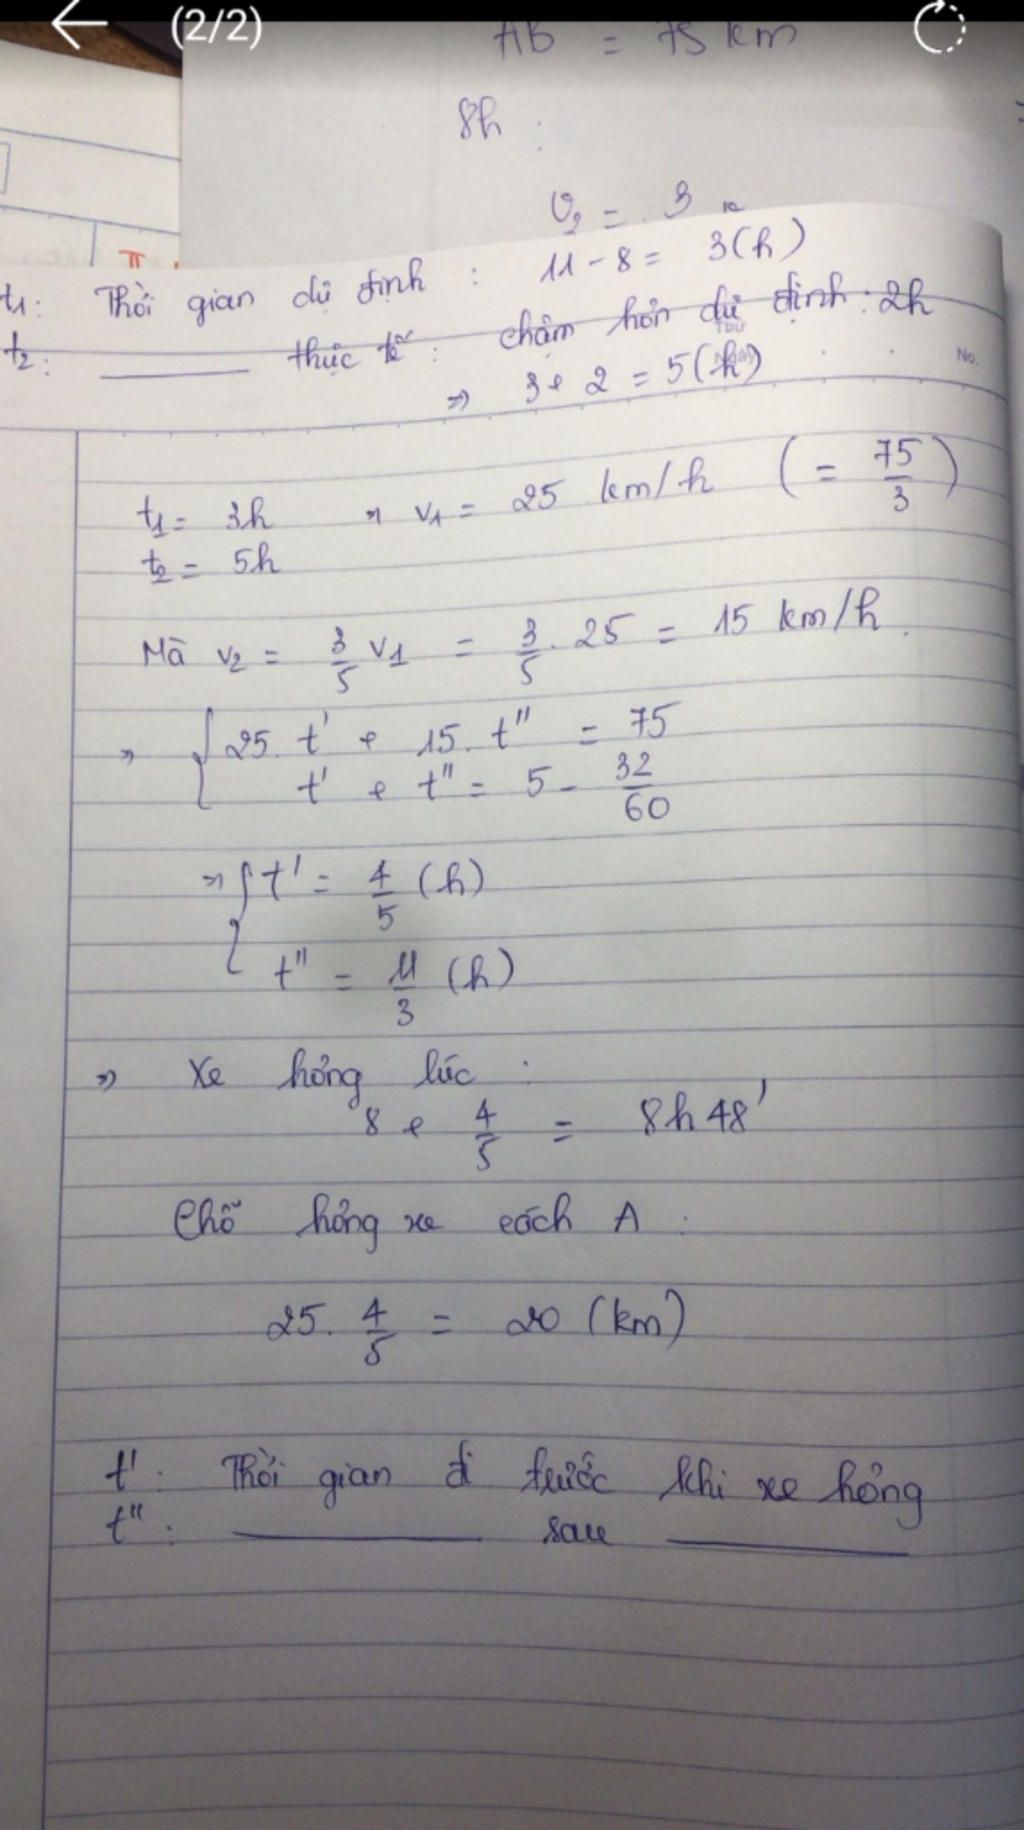 (2/2)
AB = 75 km
8h :
π.
V₂ = 3
t1: Thời gian dự định : 11 - 8 = 3(h)
t2: ——— thực tế : chậm hơn dự định : 2h
⇒ 3 + 2 = 5(h)
No.
t1 = 3h ⇒ v1 = 25 km/h ( = 75/3 )
t2 = 5h
Mà v2 = 3/5 v1 = 3/5 . 25 = 15 km/h.
⇒ { 25. t' + 15. t'' = 75
t' + t'' = 5 - 32/60
⇒ { t' = 4/5 (h)
t'' = 11/3 (h)
⇒ Xe hỏng lúc :
8 + 4/5 = 8h 48'
Chỗ hỏng xe cách A :
25. 4/5 = 20 (km)
t' : Thời gian đi trước khi xe hỏng
t'' : ——— sau ———